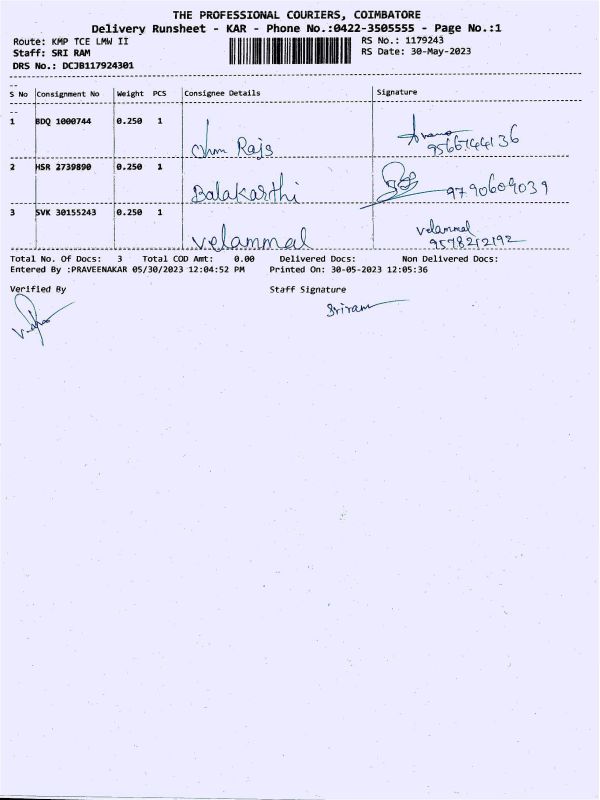 THE PROFESSIONAL COURIERS, COIMBATORE
Delivery Runsheet - KAR - Phone No.:0422-3505555 - Page No.:1
Route: KMP TCE LMW II RS No.: 1179243
Staff: SRI RAM RS Date: 30-May-2023
DRS No.: DCJB117924301
S No Consignment No Weight PCS Consignee Details Signature
1 BDQ 1000744 0.250 1 Ohm Rajs
2 HSR 2739890 0.250 1 Balakarthi 9790609039
3 SVK 30155243 0.250 1 velammal velammal
9578212192
Total No. Of Docs: 3 Total COD Amt: 0.00 Delivered Docs: Non Delivered Docs:
Entered By :PRAVEENAKAR 05/30/2023 12:04:52 PM Printed On: 30-05-2023 12:05:36
Verified By Staff Signature
Sriram